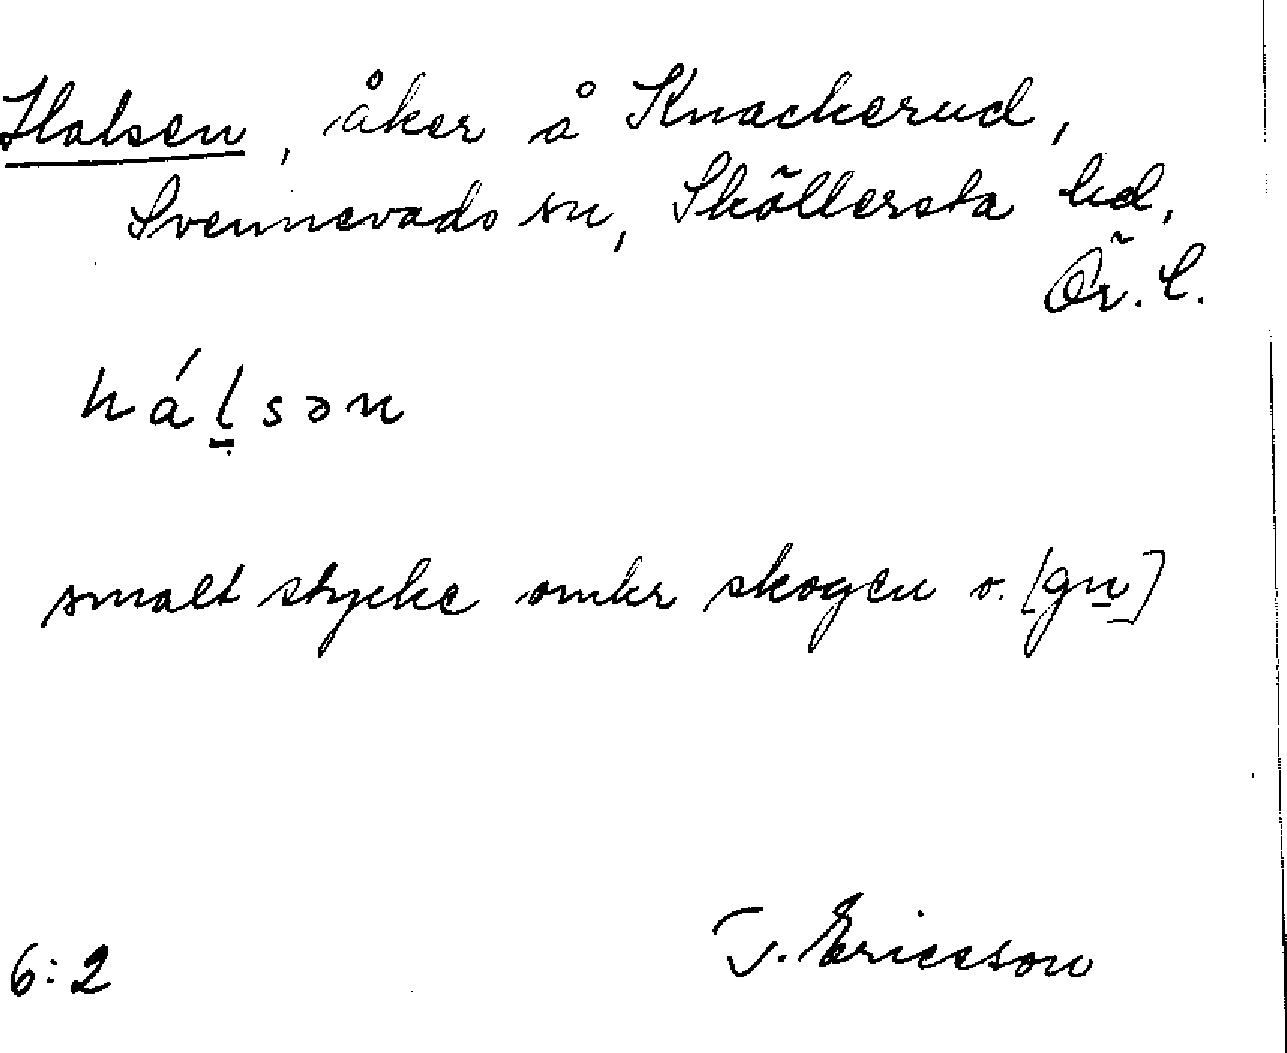 Halsen, åker å Knackerud,
Svennevads sn, Sköllersta hd,
Ör. l.
hál̠sən
smalt stycke omkr skogen o. [gn̠]
6:2 T. Ericsson